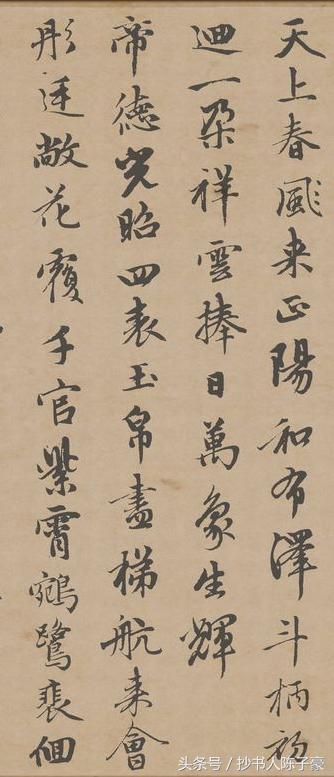 天上春風来正陽和布澤斗柄初
迴一朵祥雲捧日萬象生輝
帝德光昭四表玉帛盡梯航来會
彤廷敞花覆千官紫霄鵷鷺裴佪
头条号 / 抄书人陈子豪